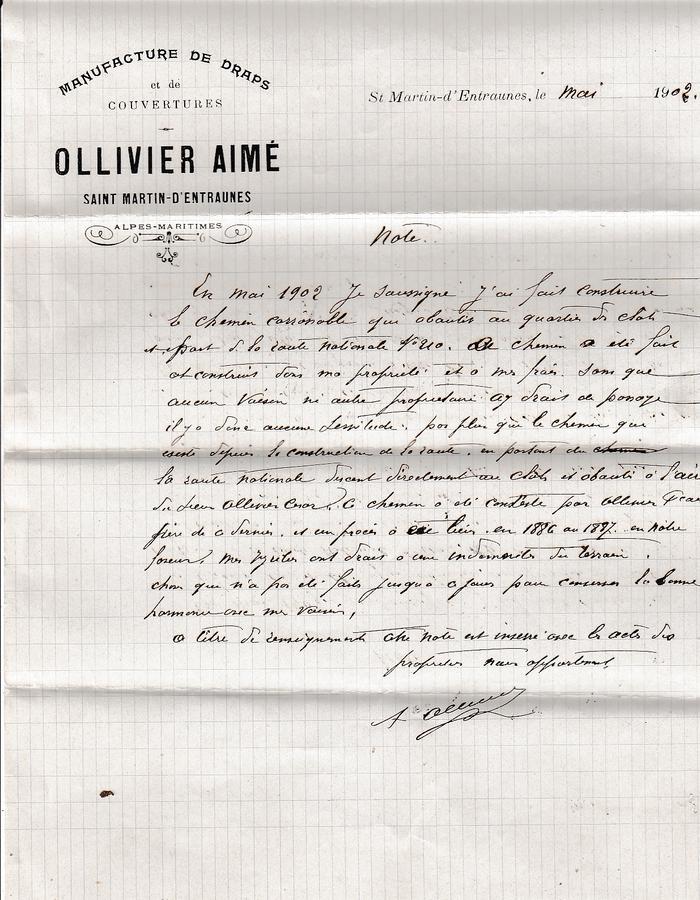 MANUFACTURE DE DRAPS
et de
COUVERTURES
OLLIVIER AIMÉ
SAINT MARTIN-D'ENTRAUNES
ALPES-MARITIMES
St Martin-d'Entraunes, le mai 1902.
Note.
En mai 1902 Je soussigné j'ai fait construire
le chemin carrossable qui aboutit au quartier du clots
et part de la route nationale N° 210. Ce chemin a été fait
et construit dans ma propriété et a mes frais. sans que
aucun Voisin ni autre propriétaire ay droit de passage
il y a donc aucune servitude. pas plus que le chemin que
existe depuis la construction de la route. en partant de
la route nationale descent directement au clots et aboutit à l'air
du sieur Ollivier Cesar. Ce chemin a été contesté par Ollivier
frère de ce dernier. et un procès a été lieu en 1886 au 1887. en notre
faveur. mes ont droit à une indemnités du terrain.
chose que n'a pas été faite jusqu'à ce jour pour conserver la bonne
harmonie avec mes Voisins,
a titre de renseignements cette note est inseré avec les actes des
propriétés nous appartenant
A Ollivier